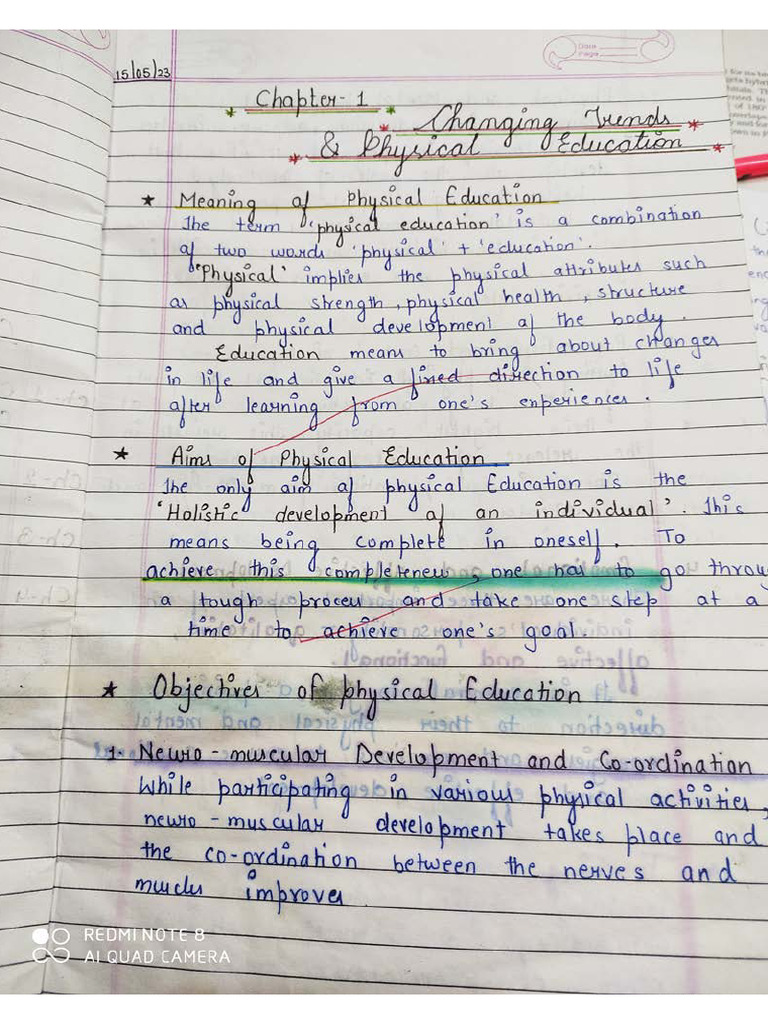 15/05/23
Chapter-1
Changing Trends
& Physical Education
* Meaning of Physical Education
The term 'physical education' is a combination
of two words 'physical' + 'education'.
'Physical' implies the physical attributes such
as physical strength, physical health, structure
and physical development of the body.
Education means to bring about changes
in life and give a fined direction to life
after learning from one's experiences.
* Aims of Physical Education
The only aim of physical Education is the
'Holistic development of an individual'. This
means being complete in oneself. To
achieve this completeness, one has to go throug
a tough process and take one step at a
time to achieve one's goal.
* Objectives of physical Education
1. Neuro-muscular Development and Co-ordination
While participating in various physical activities,
neuro-muscular development takes place and
the co-ordination between the nerves and
muscles improves
REDMI NOTE 8
AI QUAD CAMERA